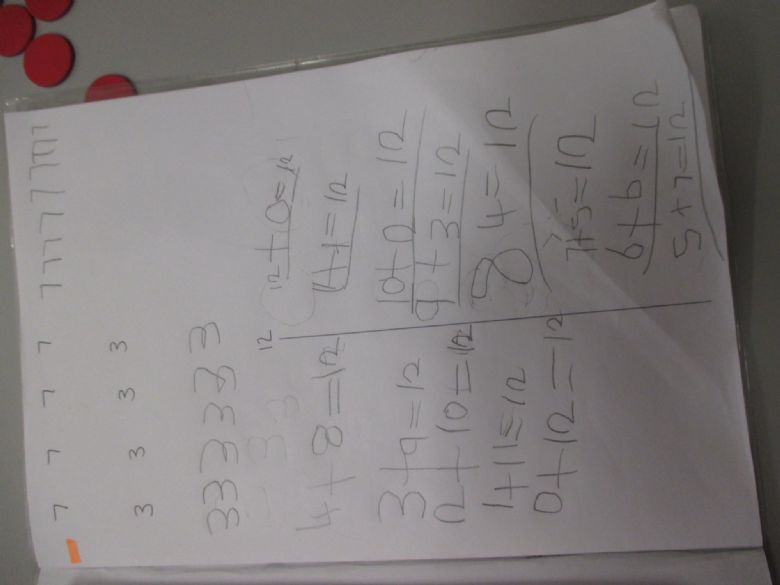 7 7 7 7 7 7 7 7 7 7 7 7 7
3 3 3 3
3 3 3 3 3 3
12
4+8=12
3+9=12
2+10=12
1+11=12
0+12=12
12+0=12
11+1=12
10+2=12
9+3=12
8 4=12
7+5=12
6+6=12
5+7=12